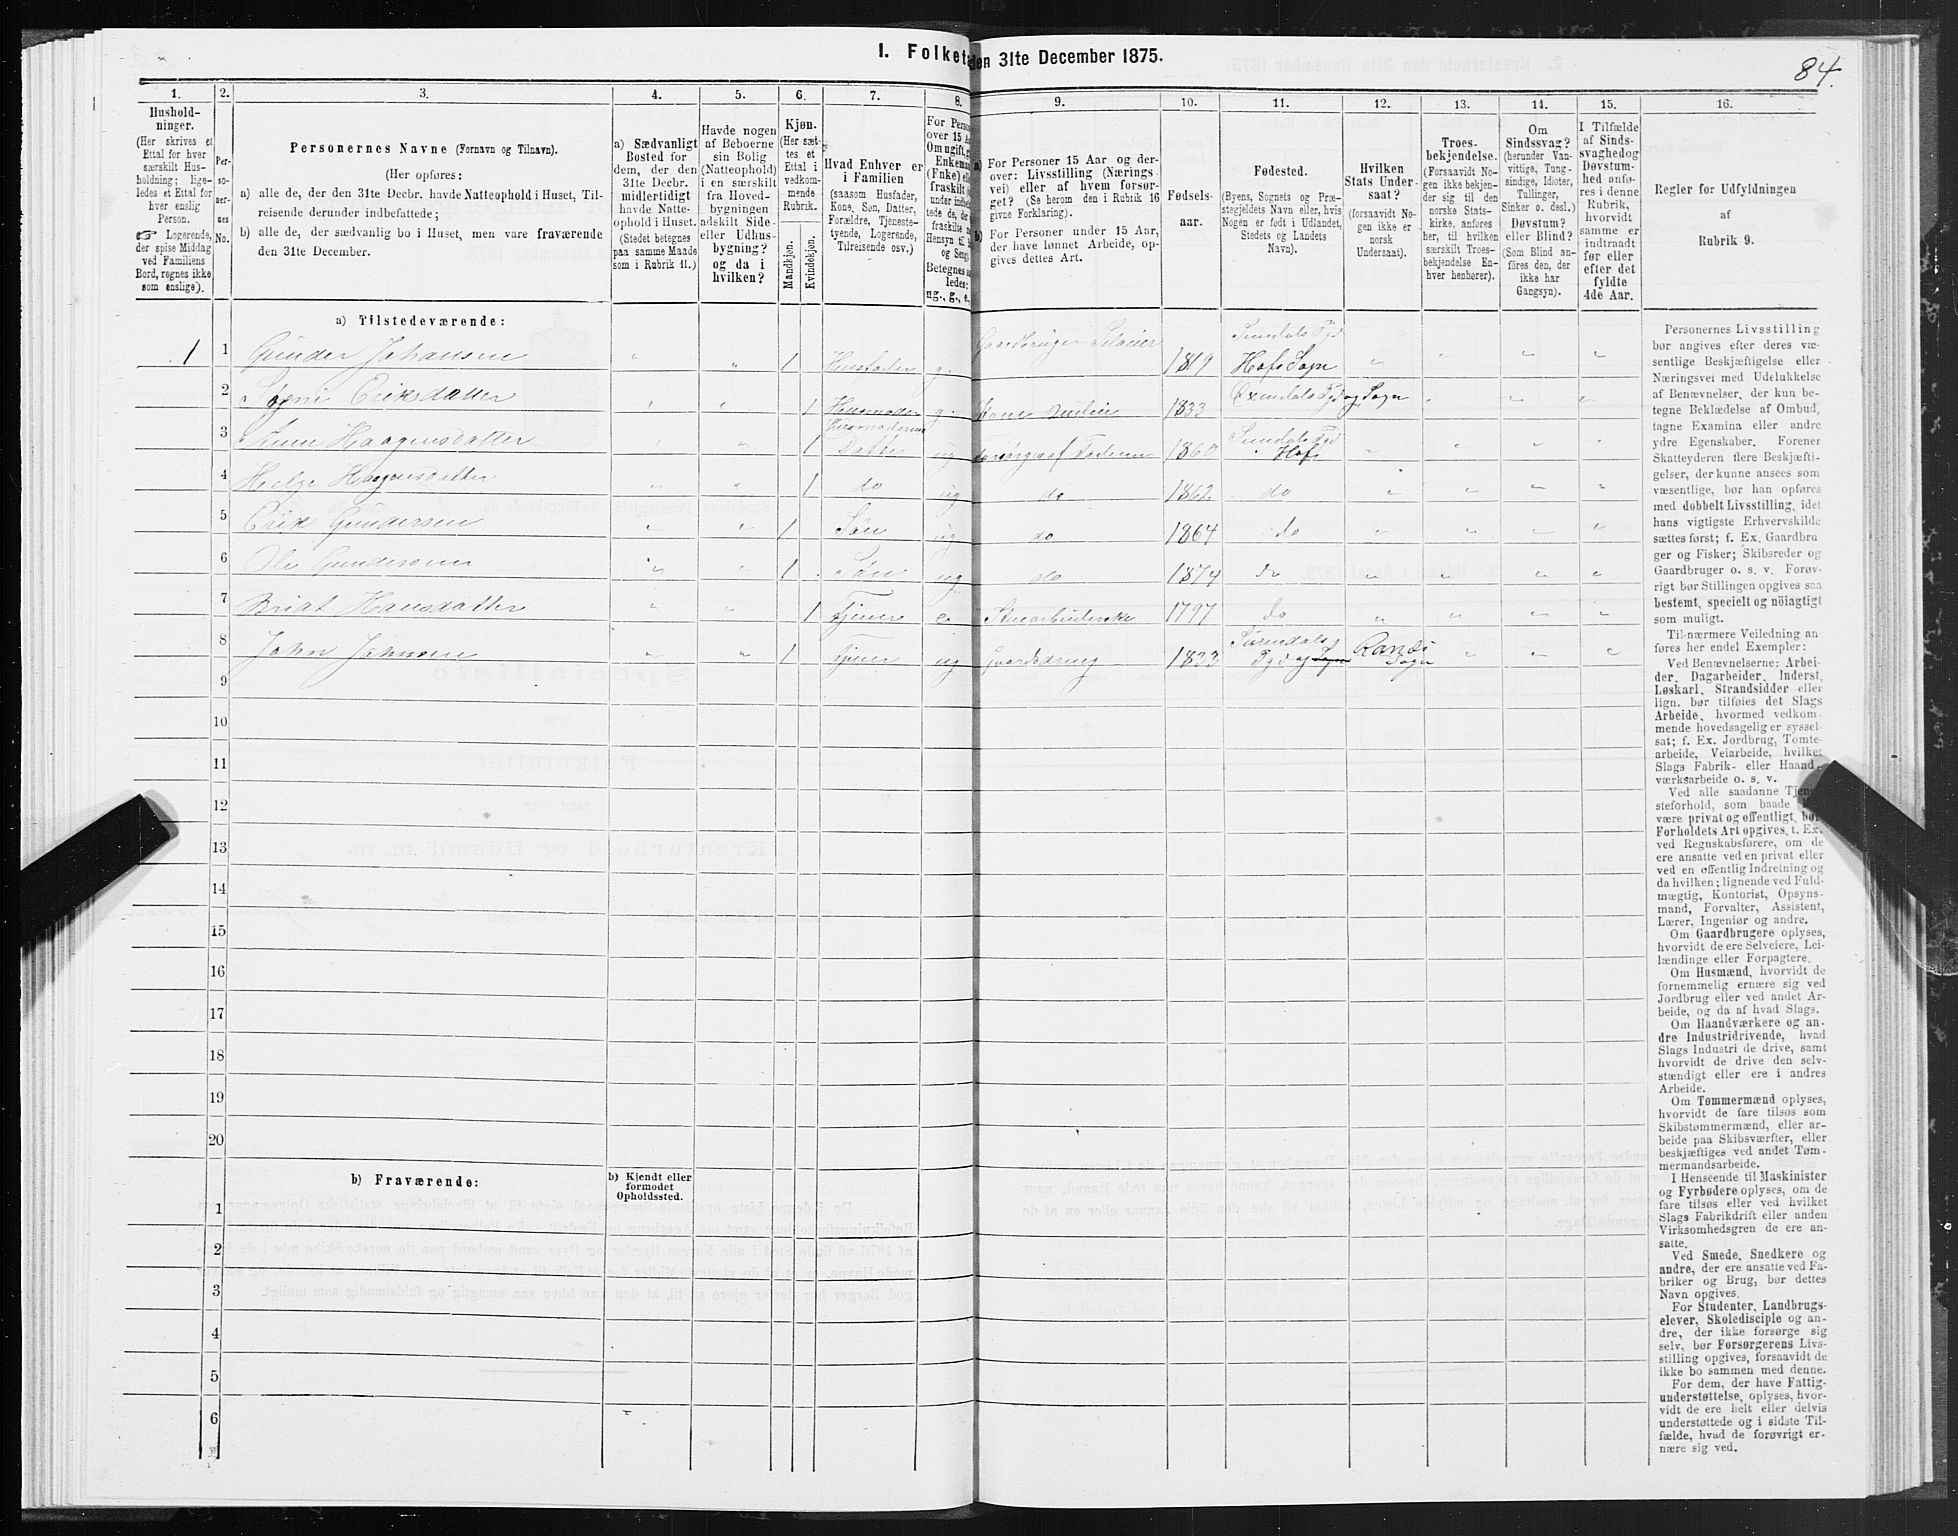 I. Folket den 31te December 1875.
84.
1. 2. 3. 4. 5. 6. 7. 8. 9. 10. 11. 12. 13. 14. 15. 16.
Hushold-
ninger.
(Her skrives et
Ettal for hver
særskilt Hus-
holdning; lige-
ledes et Ettal for
hver enslig
Person.
☞ Logerende,
der spise Middag
ved Familiens
Bord, regnes ikke
som enslige).
Per-
so-
ner-
nes
No.
Personernes Navne (Fornavn og Tilnavn).
(Her opføres:
a) alle de, der den 31te Decbr. havde Natteophold i Huset, Til-
reisende derunder indbefattede;
b) alle de, der sædvanlig bo i Huset, men vare fraværende
den 31te December.
a) Sædvanligt
Bosted for
dem, der den
31te Decbr.
midlertidigt
havde Natte-
ophold i Huset.
(Stedet betegnes
paa samme Maade
som i Rubrik 11.)
Havde nogen
af Beboerne
sin Bolig
(Natteophold)
i en særskilt
fra Hoved-
bygningen
adskilt Side-
eller Udhus-
bygning?
og da i
hvilken?
Kjøn.
(Her sæt-
tes et
Ettal i
vedkom-
mende
Rubrik.
Mandkjøn.
Kvindekjøn.
Hvad Enhver er
i Familien
(saasom Husfader,
Kone, Søn, Datter,
Forældre, Tjeneste-
tyende, Logerende,
Tilreisende osv.)
For Perso
over 15 A
Om ugift, g
Enkema
(Fnke) el
fraskilt
under indbe
tede de, de
fraskilte
Hensyn til
og Seng
Betegnes
ledes:
ug., g., e.
a) For Personer 15 Aar og der-
over: Livsstilling (Nærings-
vei) eller af hvem forsør-
get? (Se herom den i Rubrik 16
givne Forklaring).
b) For Personer under 15 Aar,
der have lønnet Arbeide, op-
gives dettes Art.
Fødsels-
aar.
Fødested.
(Byens, Sognets og Præ-
stegjeldets Navn eller, hvis
Nogen er født i Udlandet,
Stedets og Landets
Navn).
Hvilken
Stats Under-
saat?
(forsaavidt No-
gen ikke er
norsk
Undersaat).
Troes-
bekjendelse.
(Forsaavidt No-
gen ikke bekjen-
der sig til den
norske Stats-
kirke, anføres
her, til hvilken
særskilt Troes-
bekjendelse En-
hver henhører).
Om
Sindssvag?
(herunder Van-
vittige, Tung-
sindige, Idioter,
Tullinger,
Sinker o. desl.)
Døvstum?
eller Blind?
(Som Blind an-
føres den, der
ikke har
Gangsyn).
I Tilfælde
af Sinds-
svaghed og
Døvstum-
hed anfø-
res i denne
Rubrik,
hvorvidt
samme er
indtraadt
før eller
efter det
fyldte
4de Aar.
Regler for Udfyldningen
af
Rubrik 9.
a) Tilstedeværende:
1 1 Gunder Johansen " " 1 Husfader g. Gaardbruger Selveier 1819 Sundals Pgd Hofs Sogn " " " "
2 Sogni Eriksdatter " " 1 Husmoder g. Kone 1833 Øxendals Pgd og Sogn " " "
3 Haagensdatter " " 1 Husmoderens Datter ug Forsørges af Faderen 1860 Sundals Pgd Hofs " " " "
4 Helge Haagensdatter " " 1 do ug do 1862 do " " " "
5 Erik Gundersen " " 1 Søn ug do 1864 do " " " "
6 Ole Gundersen " " 1 Søn ug do 1874 do " " " "
7 Bridt Hansdatter " " 1 Tjener e. 1797 do " " " "
8 John Johnsen " " 1 Tjener ug Gaardsdreng 1833 Surendals Pgd og Sogn Rands Sogn " " "
9
10
11
12
13
14
15
16
17
18
19
20
b) Fraværende:
b) Kjendt eller
formodet
Opholdssted.
1
2
3
4
5
6
Personernes Livsstilling
bør angives efter deres væ-
sentlige Beskjæftigelse eller
Næringsvei med Udelukkelse
af Benævnelser, der kun be-
tegne Beklædelse af Ombud,
tagne Examina eller andre
ydre Egenskaber. Forener
Skatteyderen flere Beskjæfti-
gelser, der kunne ansees som
væsentlige, bør han opføres
med dobbelt Livsstilling, idet
hans vigtigste Erhvervskilde
sættes først; f. Ex. Gaardbru
ger og Fisker; Skibsreder og
Gaardbruger o. s. v. Forøv-
rigt bør Stillingen opgives saa
bestemt, specielt og nöiagtigt
som muligt.
Til nærmere Veiledning an
føres her endel Exempler:
Ved Benævnelserne: Arbei-
der, Dagarbeider, Inderst,
Løskarl, Strandsidder eller
lign. bør tilføies det Slags
Arbeide, hvormed vedkom-
mende hovedsagelig er syssel-
sat; f. Ex. Jordbrug, Tomte-
arbeide, Veiarbeide, hvilket
Slags Fabrik- eller Haand-
værksarbeide o. s. v.
Ved alle saadanne Tjene-
steforhold, som baade
være privat og offentligt, bør
Forholdets Art opgives, t. Ex.
ved Regnskabsførere, om de
ere ansatte ved en privat eller
ved en offentlig Indretning og
da hvilken; lignende ved Fuld-
mægtig, Kontorist, Opsyns-
mand, Forvalter, Assistent,
Lærer, Ingeniør og andre.
Om Gaardbrugere oplyses,
hvorvidt de ere Selveiere, Lei-
lændinge eller Forpagtere.
Om Husmænd, hvorvidt de
fornemmelig ernære sig ved
Jordbrug eller ved andet Ar-
beide, og da af hvad Slags.
Om Haandværkere og an-
dre Industridrivende, hvad
Slags Industri de drive, samt
hvorvidt de drive den selv-
stændigt eller ere i andres
Arbeide.
Om Tømmermænd oplyses,
hvorvidt de fare tilsøs som
Skibstømmermænd, eller ar-
beide paa Skibsværfter, eller
beskjæftiges ved andet Tøm-
mermandsarbeide.
I Henseende til Maskinister
og Fyrbødere oplyses, om de
fare tilsøs eller ved hvilket
Slags Fabrikdrift eller anden
Virksomhedsgren de ere an-
satte.
Ved Smede, Snedkere og
andre, der ere ansatte ved Fa-
briker og Brug, bør dettes
Navn opgives.
For Studenter, Landbrugs-
elever, Skoledisciple og an-
dre, der ikke forsørge sig
selv, bør Forsørgerens Livs-
stilling opgives, forsaavidt de
ikke bo sammen med denne.
For dem, der have Fattig-
understøttelse, oplyses, hvor-
vidt de ere helt eller delvis
understøttede og i sidste Til-
fælde, hvad de forøvrigt er-
nære sig ved.